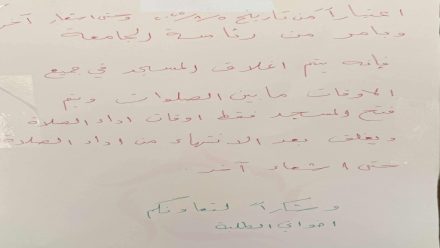 اعتباراً من تاريخ وحتى اشعار آخر
وبامر من رئاسة الجامعة
فإنه يتم اغلاق المسجد في جميع
الاوقات ما بين الصلوات ويتم
فتح المسجد فقط اوقات اداء الصلاة
ويغلق بعد الانتهاء من اداء الصلاة
حتى اشعار آخر.
وشكراً لتعاونكم
اخواني الطلبة